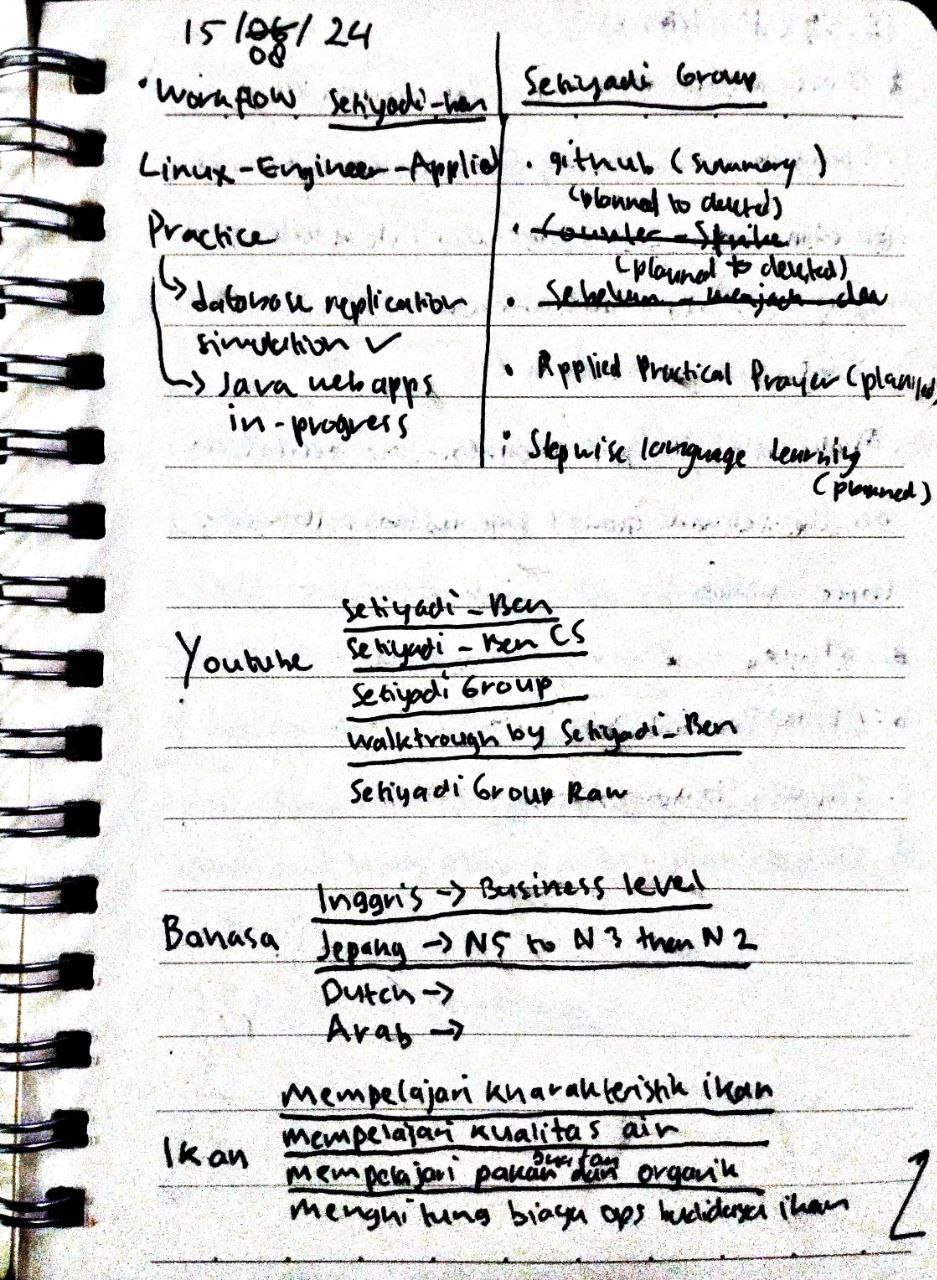 15/06/24
08
· Workflow Setiyadi-han
Linux-Engineer-Applied
Practice
↳ database replication
simulation ✓
↳ Java web apps
in-progress
Setiyadi Group
· github (summary)
(planned to deleted)
· Counter-Strike
(planned to deleted)
· Sebelum menjadi dan
· Applied Practical Prayer (planned)
· Stepwise language learning
(planned)
Youtube
Setiyadi-Ben
Setiyadi-Ben CS
Setiyadi Group
Walktrough by Setiyadi-Ben
Setiyadi Group Raw
Bahasa
Inggris → Business level
Jepang → N5 to N3 then N2
Dutch →
Arab →
Ikan
Mempelajari kharakteristik ikan
mempelajari kualitas air
mempelajari pakan dan organik
menghitung biaya ops budidaya ikan